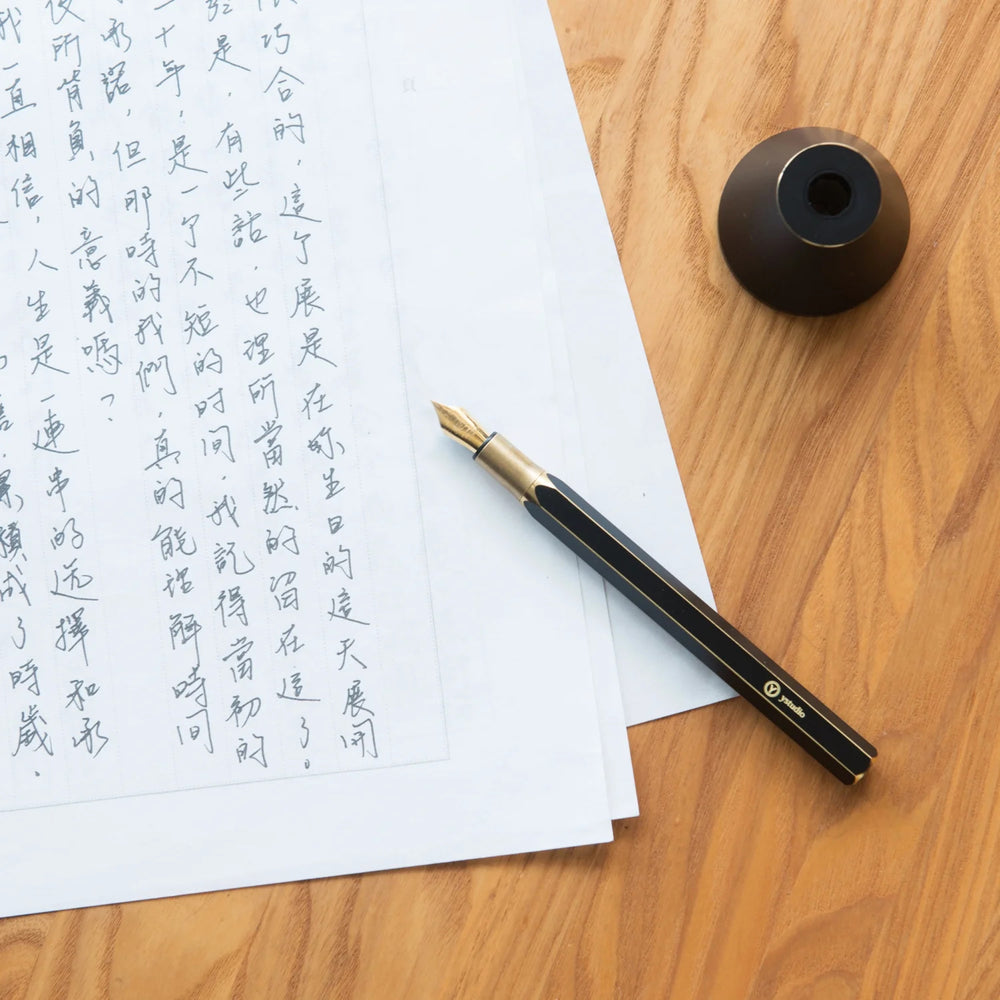 巧合的，這个展是在妳生日的這天展開
是，有些話，也理所當然的留在這了。
十年，是一个不短的时间，我記得當初的
承諾，但那時的我們，真的能理解時间
後所背負的意義嗎？
我一直相信，人生是一連串的选擇和承
累積成了時歲.
ystudio